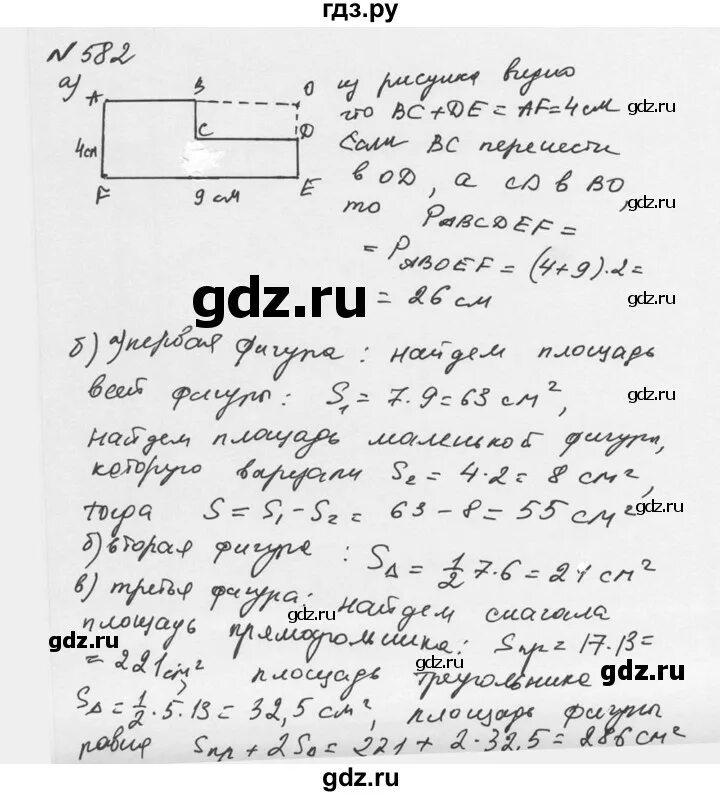 гдз.ру
N 582
а)
A B O
C D
4см
F 9 см E
из рисунка видно
что BC+DE = AF=4см
Если BC перенести
в OD, а CD в BO,
то PABCDEF =
= PABOEF = (4+9)·2=
= 26 см
б) а) первая фигура: найдем площадь
всей фигуры: S1 = 7·9=63 см²,
найдем площадь маленькой фигуры,
которую вырезали S2 = 4·2 = 8 см²,
тогда S = S1-S2 = 63-8=55 см²
б) вторая фигура: SΔ = 1/2 7·6=21 см²
в) третья фигура: найдем сначала
площадь прямоугольника: Sпр = 17·13=
= 221 см², площадь треугольника
SΔ = 1/2·5·13 = 32,5 см², площадь фигуры
равна Sпр + 2SΔ = 221 + 2·32,5=286 см²
gdz.ru
gdz.ru
gdz.ru
gdz.ru
gdz.ru
gdz.ru
gdz.ru
gdz.ru
gdz.ru
gdz.ru
gdz.ru
gdz.ru
gdz.ru